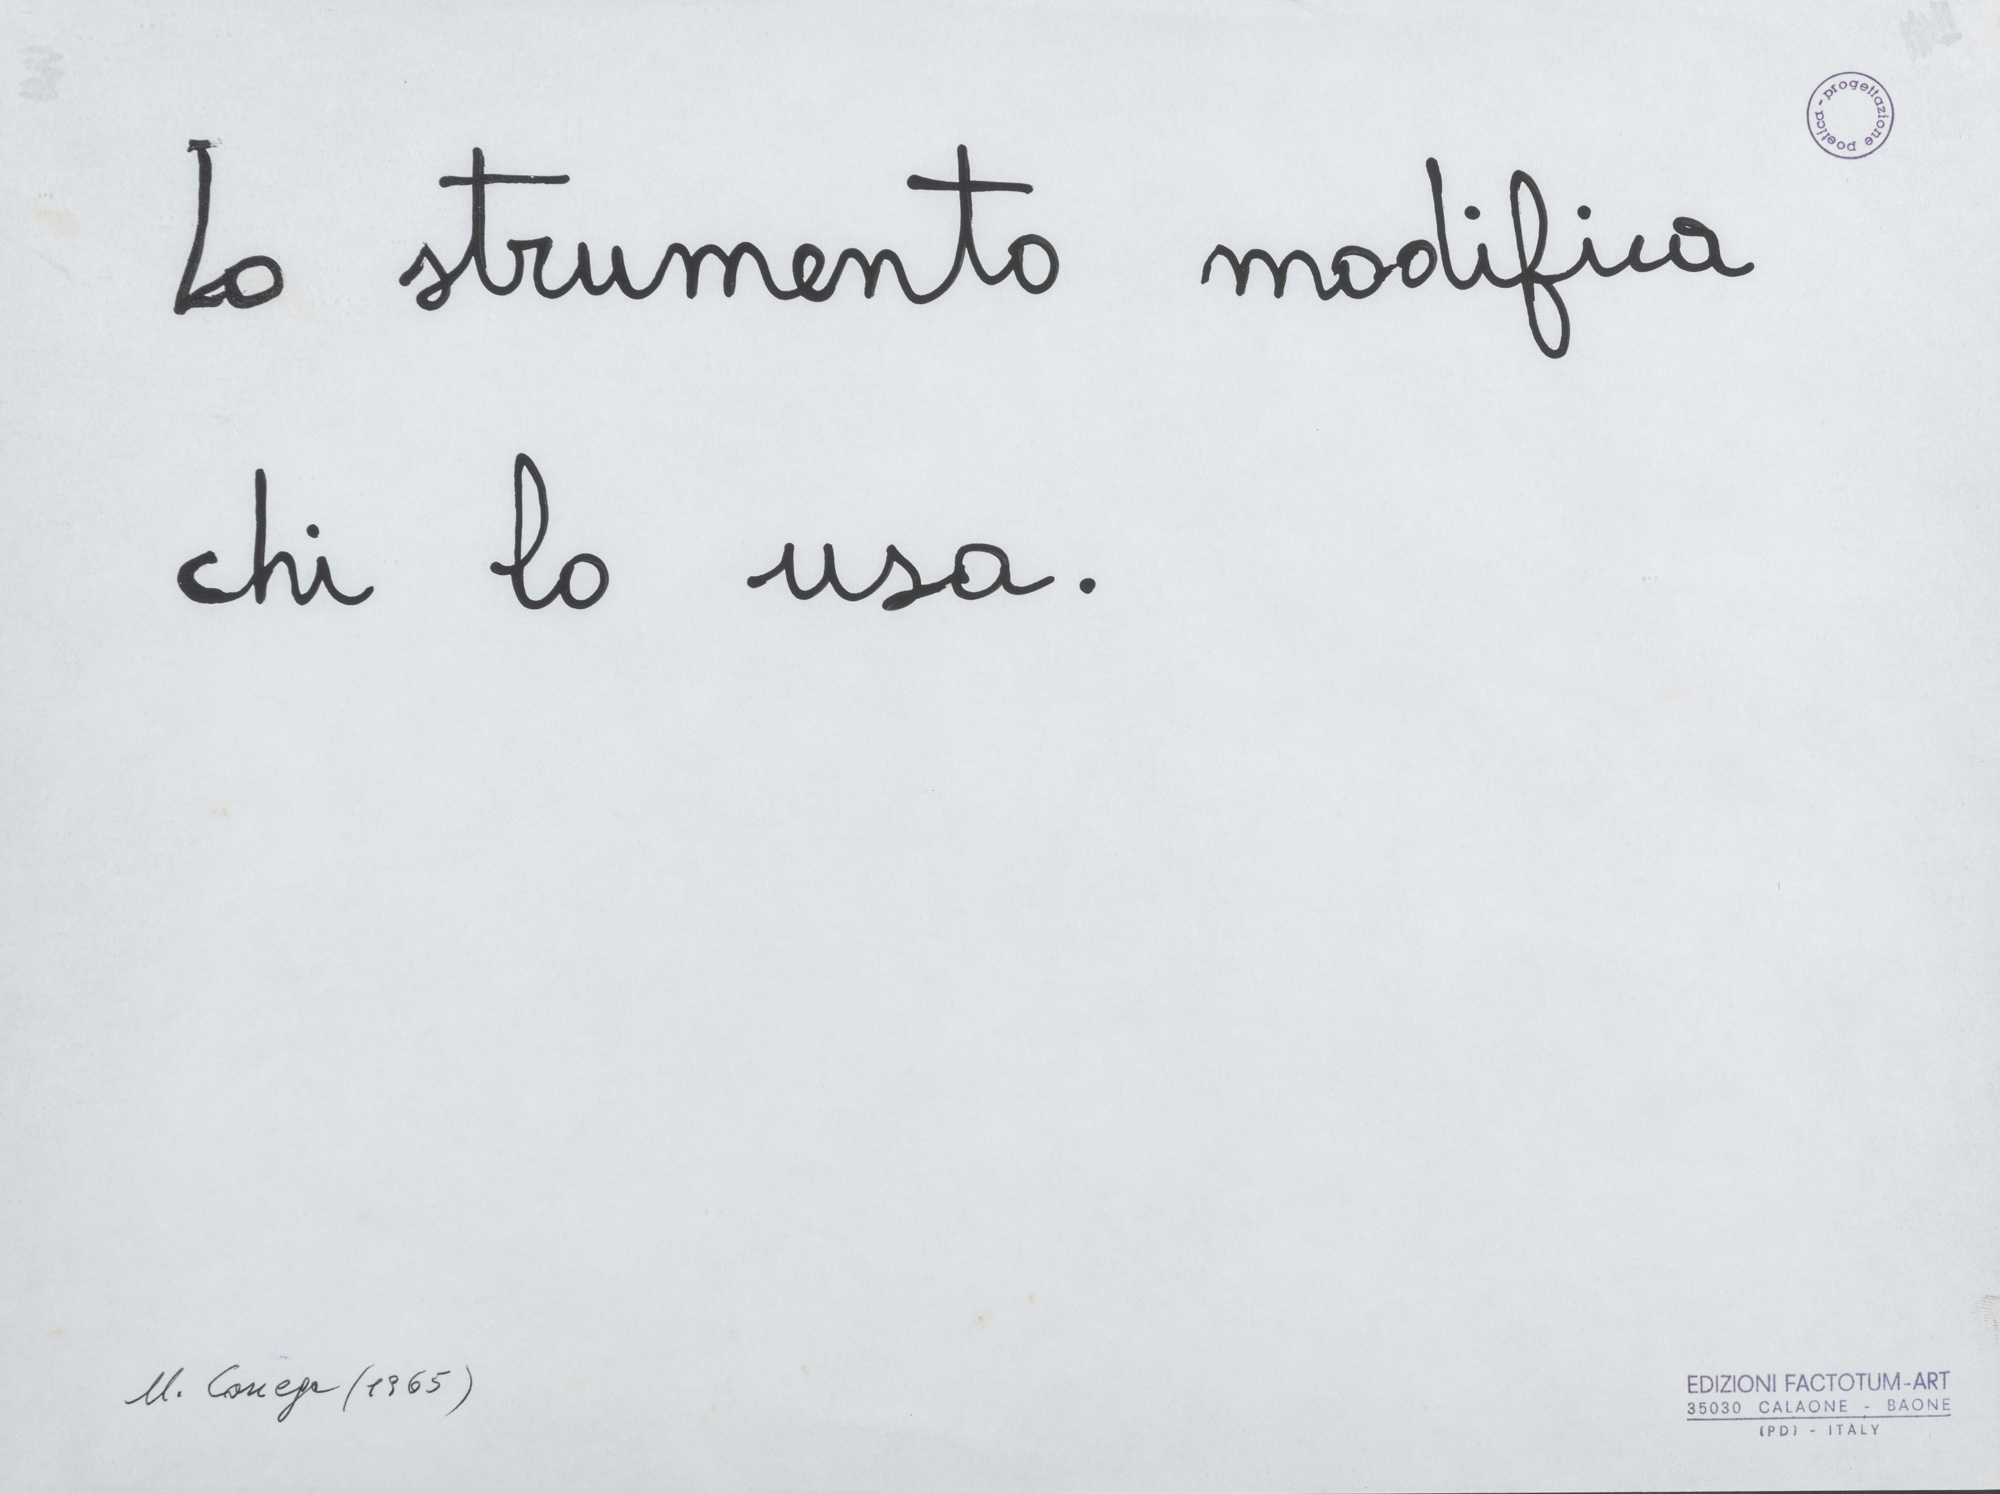 progettazione poetica -
Lo strumento modifica
chi lo usa.
M. (1965)
EDIZIONI FACTOTUM-ART
35030 CALAONE - BAONE
(PD) - ITALY